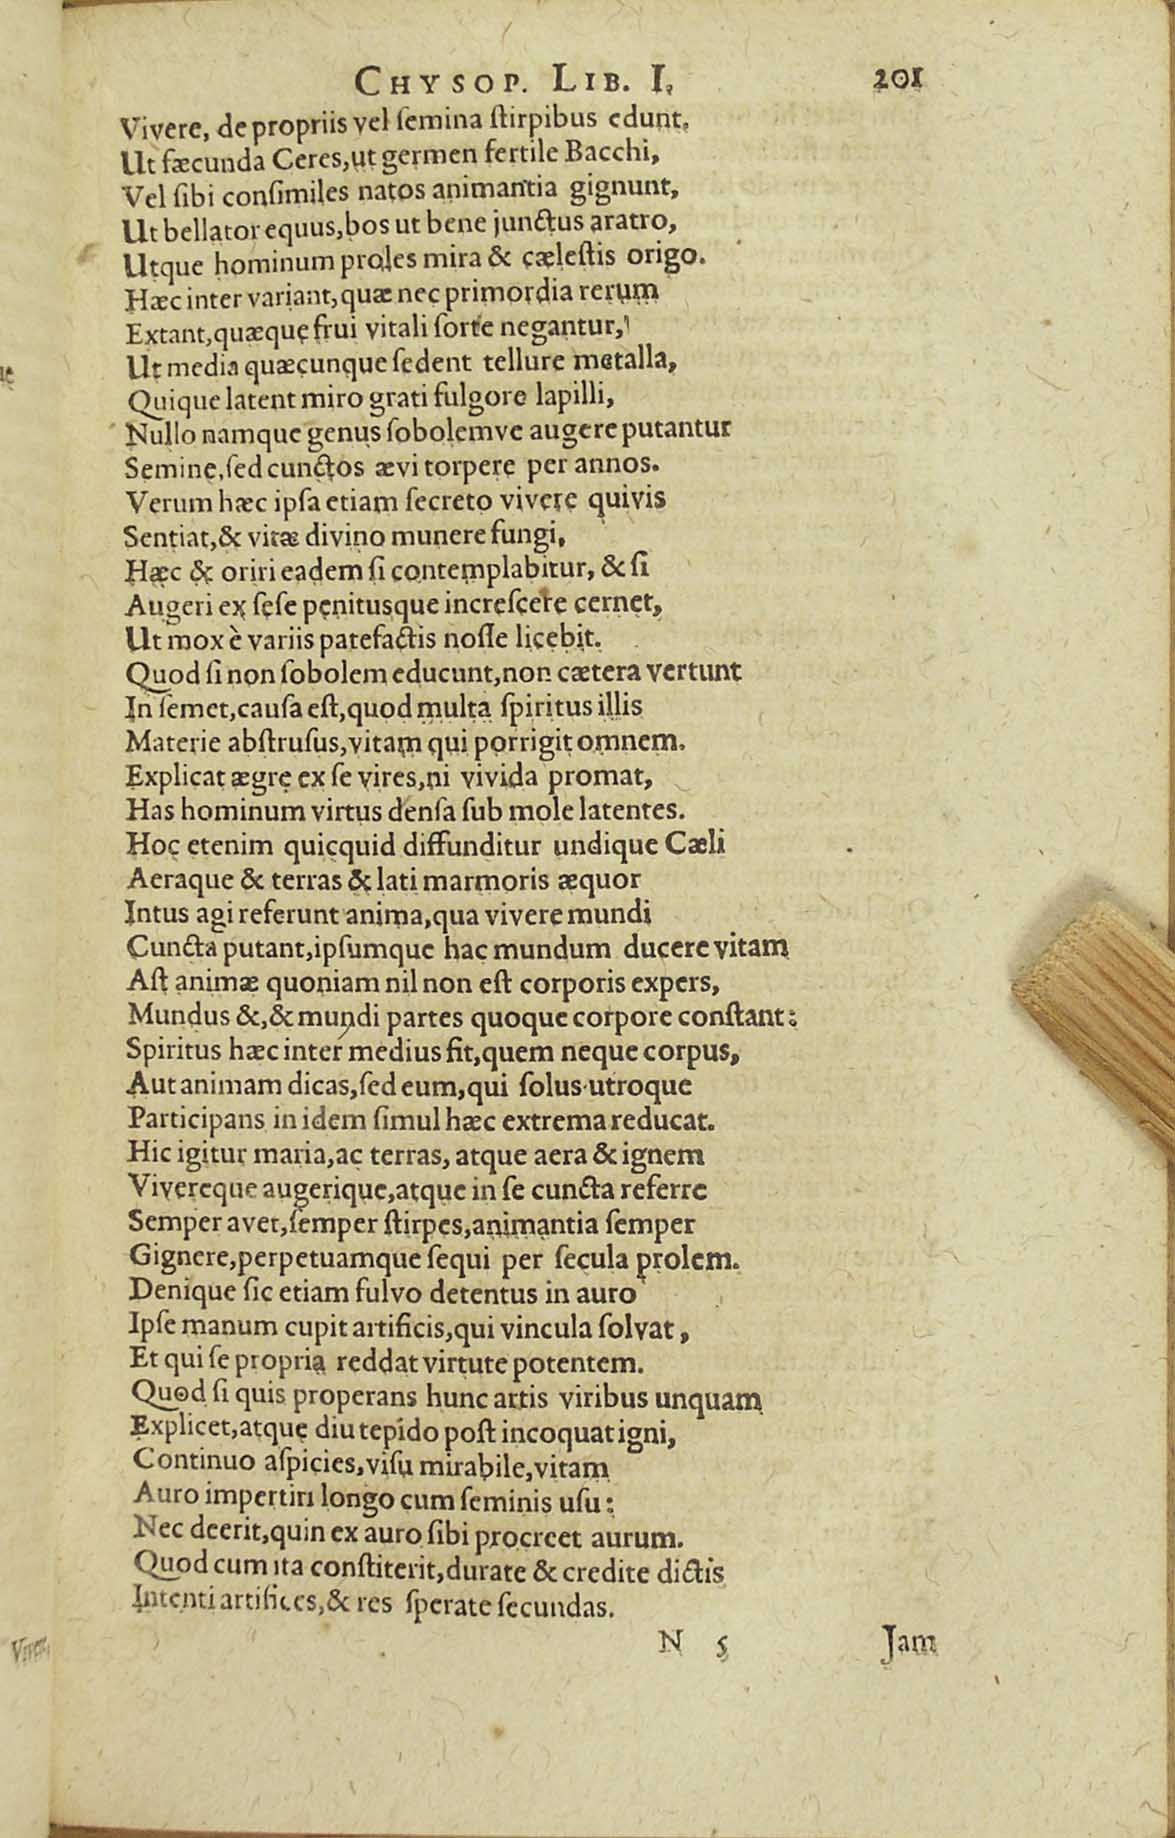 CHYSOP. LIB. I, 201
Vivere, de propriis vel ſemina ſtirpibus edunt.
Ut fæcunda Ceres, ut germen fertile Bacchi,
Vel ſibi conſimiles natos animantia gignunt,
Ut bellator equus, bos ut bene junctus aratro,
Utque hominum proles mira & cæleſtis origo.
Hæc inter variant, quæ nec primordia rerum
Extant, quæque frui vitali ſorte negantur,
Ut media quæcunque ſedent tellure metalla,
Quique latent miro grati fulgore lapilli,
Nullo namque genus ſobolemve augere putantur
Semine, ſed cunctos ævi torpere per annos.
Verum hæc ipſa etiam ſecreto vivere quivis
Sentiat, & vitæ divino munere fungi,
Hæc & oriri eadem ſi contemplabitur, & ſi
Augeri ex ſeſe penitusque increſcere cernet,
Ut mox è variis patefactis noſſe licebit.
Quod ſi non ſobolem educunt, non cætera vertunt
In ſemet, cauſa eſt, quod multa ſpiritus illis
Materie abſtruſus, vitam qui porrigit omnem.
Explicat ægre ex ſe vires, ni vivida promat,
Has hominum virtus denſa ſub mole latentes.
Hoc etenim quicquid diffunditur undique Cæli
Aeraque & terras & lati marmoris æquor
Intus agi referunt anima, qua vivere mundi
Cuncta putant, ipſumque hac mundum ducere vitam
Aſt animæ quoniam nil non eſt corporis expers,
Mundus &, & mundi partes quoque corpore conſtant:
Spiritus hæc inter medius fit, quem neque corpus,
Aut animam dicas, ſed eum, qui ſolus utroque
Participans in idem ſimul hæc extrema reducat.
Hic igitur maria, ac terras, atque aera & ignem
Vivereque augerique, atque in ſe cuncta referre
Semper avet, ſemper ſtirpes, animantia ſemper
Gignere, perpetuamque ſequi per ſecula prolem.
Denique ſic etiam fulvo detentus in auro
Ipſe manum cupit artificis, qui vincula ſolvat,
Et qui ſe propria reddat virtute potentem.
Quod ſi quis properans hunc artis viribus unquam
Explicet, atque diu tepido poſt incoquat igni,
Continuo aſpicies, viſu mirabile, vitam
Auro impertiri longo cum ſeminis uſu:
Nec deerit, quin ex auro ſibi procreet aurum.
Quod cum ita conſtiterit, durate & credite dictis
Intenti artifices, & res ſperate ſecundas.
N 5 Jam